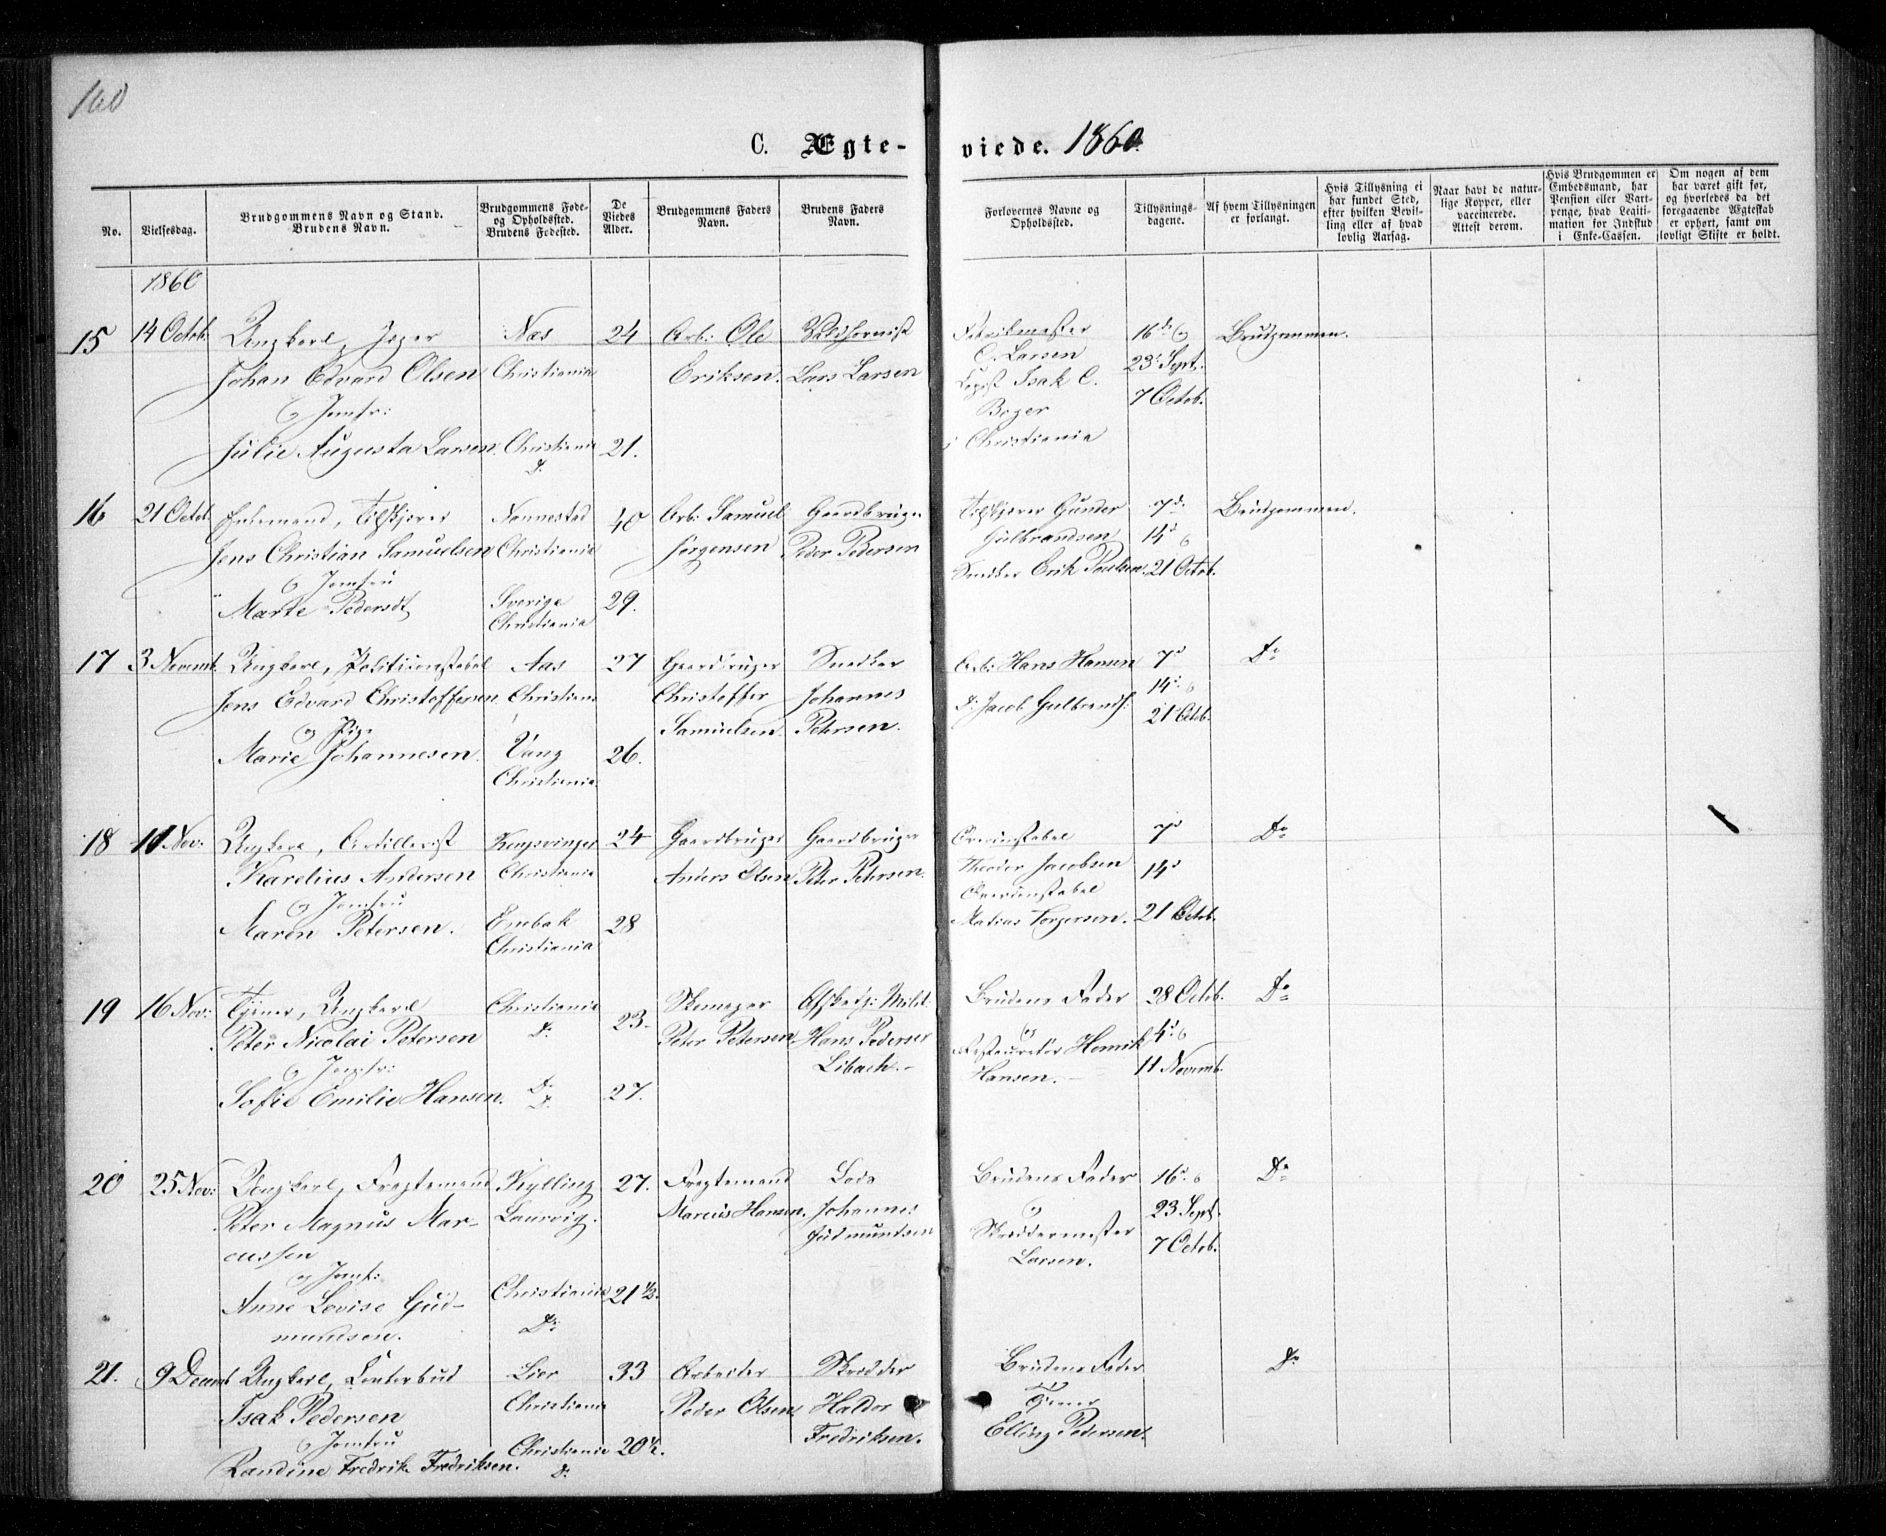 160
C. Ægte-
viede. 1860.
No.
Vielsesdag.
Brudgommens Navn og Stand.
Brudens Navn.
Brudgommens Føde-
og Opholdssted.
Brudens Fødested.
De
Viedes
Alder.
Brudgommens Faders
Navn.
Brudens Faders
Navn.
Forlovernes Navne og
Opholdssted.
Tillysnings-
dagene.
Af hvem Tillysningen
er forlangt.
Hvis Tillysning ei
har fundet Sted,
efter hvilken Bevil-
ling eller af hvad
lovlig Aarsag.
Naar havt de natur-
lige Kopper, eller
vaccinerede.
Attest derom.
Hvis Brudgommen er
Embedsmand, har
Pension eller Vart-
penge, hvad Legiti-
mation for Indskud
i Enke-Cassen.
Om nogen af dem
har været gift før,
og hvorledes da det
foregaaende Ægteskab
er ophørt, samt om
lovligt Skifte er holdt.
1860
15
14 Octob.
Ungkarl, Jæger
Johan Edvard Olsen
og Jomfr:
Julie Augusta Larsen
Næs
Christiania
Christiania
D.
24
21.
Arb: Ole
Eriksen.
Lars Larsen
C. Larsen
Isak C.
i Christiania
16d og
23d Sept.
7 Octob:
Brudgommen.
16
21 Octob.
Enkemand,
Jens Christian Samuelsen
og Jomfru
Marte Pedersdt
Nannestad
Christiania
Sverige
Christiania
40
29.
Arb: Samuel
Jørgensen
Gaardbruger
Peder Pedersen
Gunder
Gulbrandsen
Snedker Erik Paulsen
7d.
14d og
21 Octob.
Brudgommen.
17
3 Novemb.
Ungkarl, Politiconstabel
Jens Edvard Christoffersen
og Pige
Marie Johannesen.
Aas
Christiania
Vang
Christiania.
27
26.
Gaardbruger
Christoffer
Samuelsen.
Snedker
Johannes
Petersen.
Arb: Hans Hansen
D: Jacob Gulbrands:
7d
14d. og
21 Octob.
Do
18
11 Nov:
Ungkarl, Artillerist
Karelius Andersen
og Jomfru
Maren Petersen.
Kongsvinger
Christiania
Embak
Christiania
24
28
Gaardbruger
Anders Olsen
Gaardbruger
Peter Petersen.
Overconstabel
Theodor Jacobsen
Overconstabel
Matias Torgersen.
7d
14d
21 Octob.
Do
19
16 Nov:
Tjener, Ungkarl
Peter Nicolai Petersen
og Jomfr:
Sofie Emilie Hansen.
Christiania
D.
D.
D.
23.
27.
Skomager
Peter Petersen
Afskediget Milit:
Hans Pedersen
Libach.
Brudens Fader
og
Restauratør Henrik
Hansen.
28 Octob.
4d og
11 Novemb.
Do
20
25 Nov:
Ungkarl, Fragtemand
Peter Magnus Mar-
cussen
og Jomf:
Anne Lovise Gud-
mundsen.
Kylling
Laurvig.
Christiania
D:
27.
21 1/2.
Fragtemand
Marcus Hansen.
Lods
Johannes
Gudmundsen
Brudens Fader
og
Skræddermester
Larsen.
16d. og
23 Sept.
7 Octob.
Do
21.
9 Decemb
Ungkarl, Contorbud
Isak Pedersen
og Jomfru
Randine Fredrik. Fredriksen.
Lier
Christiania
Christiania
D.
33
20 1/2.
Arbeider
Peder Olsen
Skrædder
Haldor
Fredriksen.
Brudens Fader
Tjener
Elling Pedersen.
Do